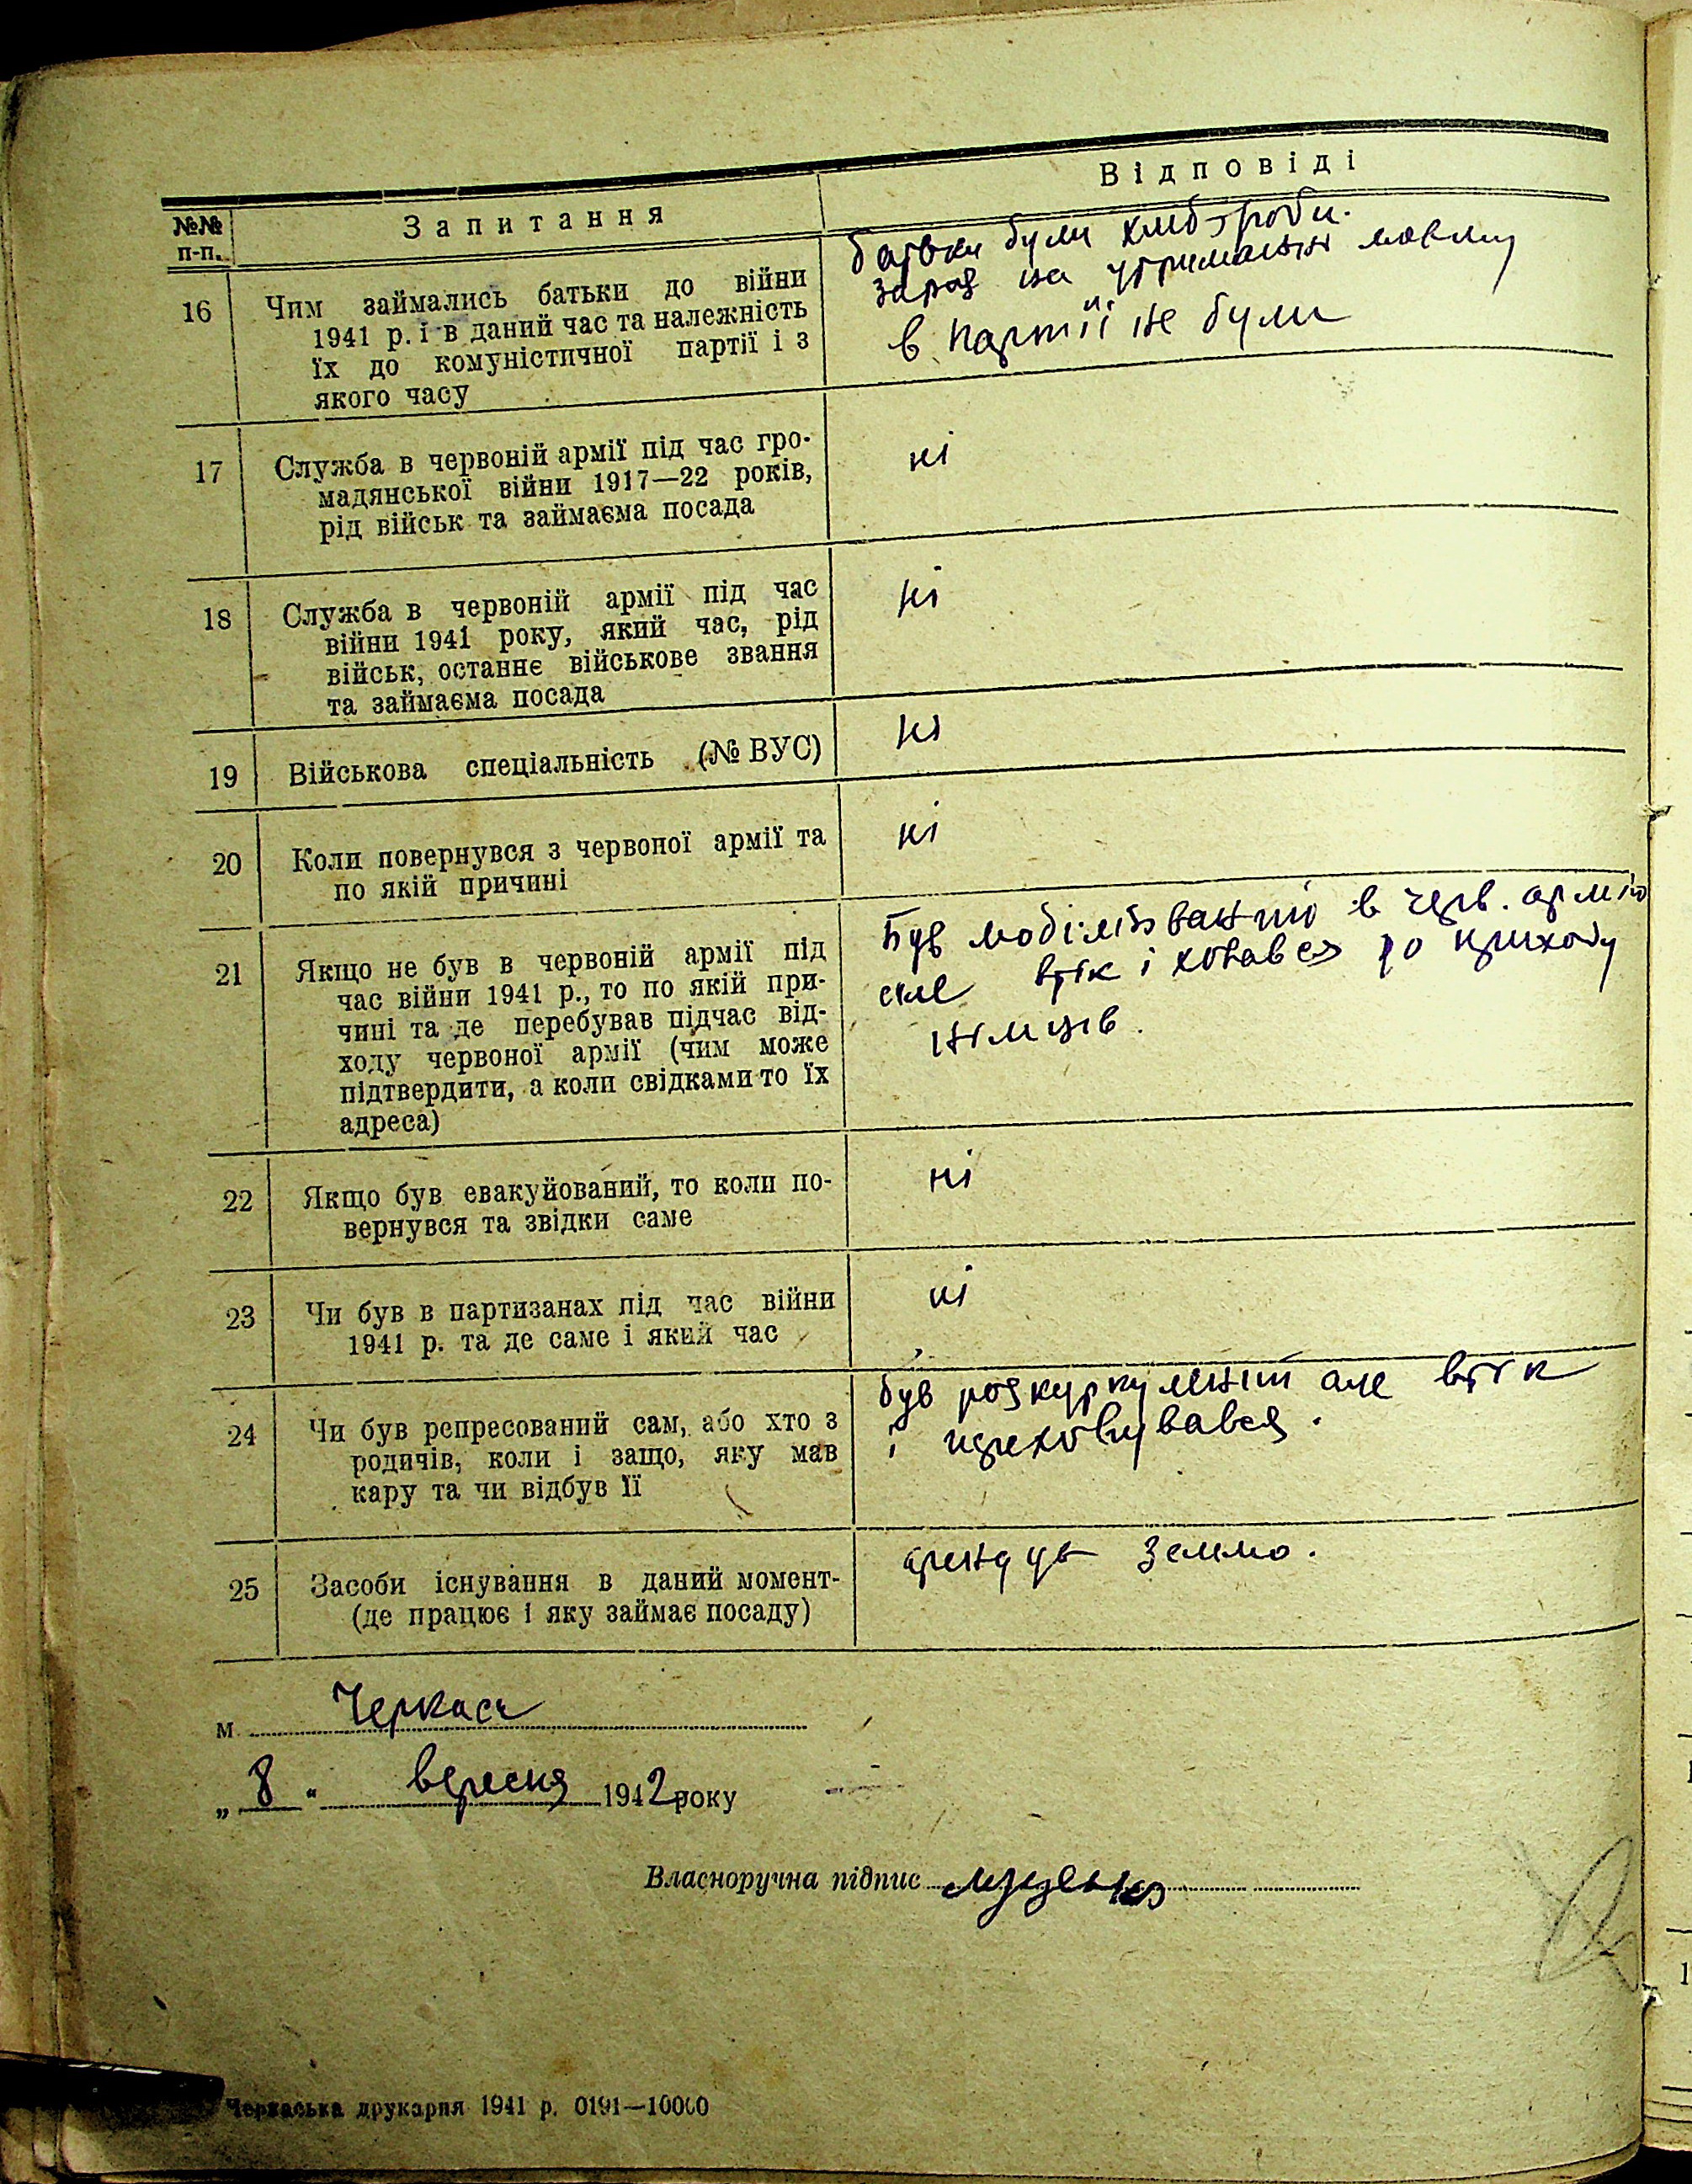 Відповіді
№№ п-п. Запитання
16 Чим займались батьки до війни
1941 р. і в даний час та належність
їх до комуністичної партії і з
якого часу
батьки були хлібороби.
зараз на утриманні моєму
в партії не були
17 Служба в червоній армії під час гро-
мадянської війни 1917—22 років,
рід військ та займаєма посада
ні
18 Служба в червоній армії під час
війни 1941 року, який час, рід
військ, останнє військове звання
та займаєма посада
ні
19 Військова спеціальність (№ ВУС)
ні
20 Коли повернувся з червоної армії та
по якій причині
ні
21 Якщо не був в червоній армії під
час війни 1941 р., то по якій при-
чині та де перебував підчас від-
ходу червоної армії (чим може
підтвердити, а коли свідками то їх
адреса)
Був мобілізваний в черв. армію
але втік і ховався до приходу
німців.
22 Якщо був евакуйований, то коли по-
вернувся та звідки саме
ні
23 Чи був в партизанах під час війни
1941 р. та де саме і який час
ні
24 Чи був репресований сам, або хто з
родичів, коли і защо, яку мав
кару та чи відбув її
був розкуркулений але втік
і преховувався.
25 Засоби існування в даний момент-
(де працює і яку займає посаду)
арендув землю.
м. Черкаси
„ 8 " вересня 1942 року
Власноручна підпис
Черкаська друкарня 1941 р. 0191—10000